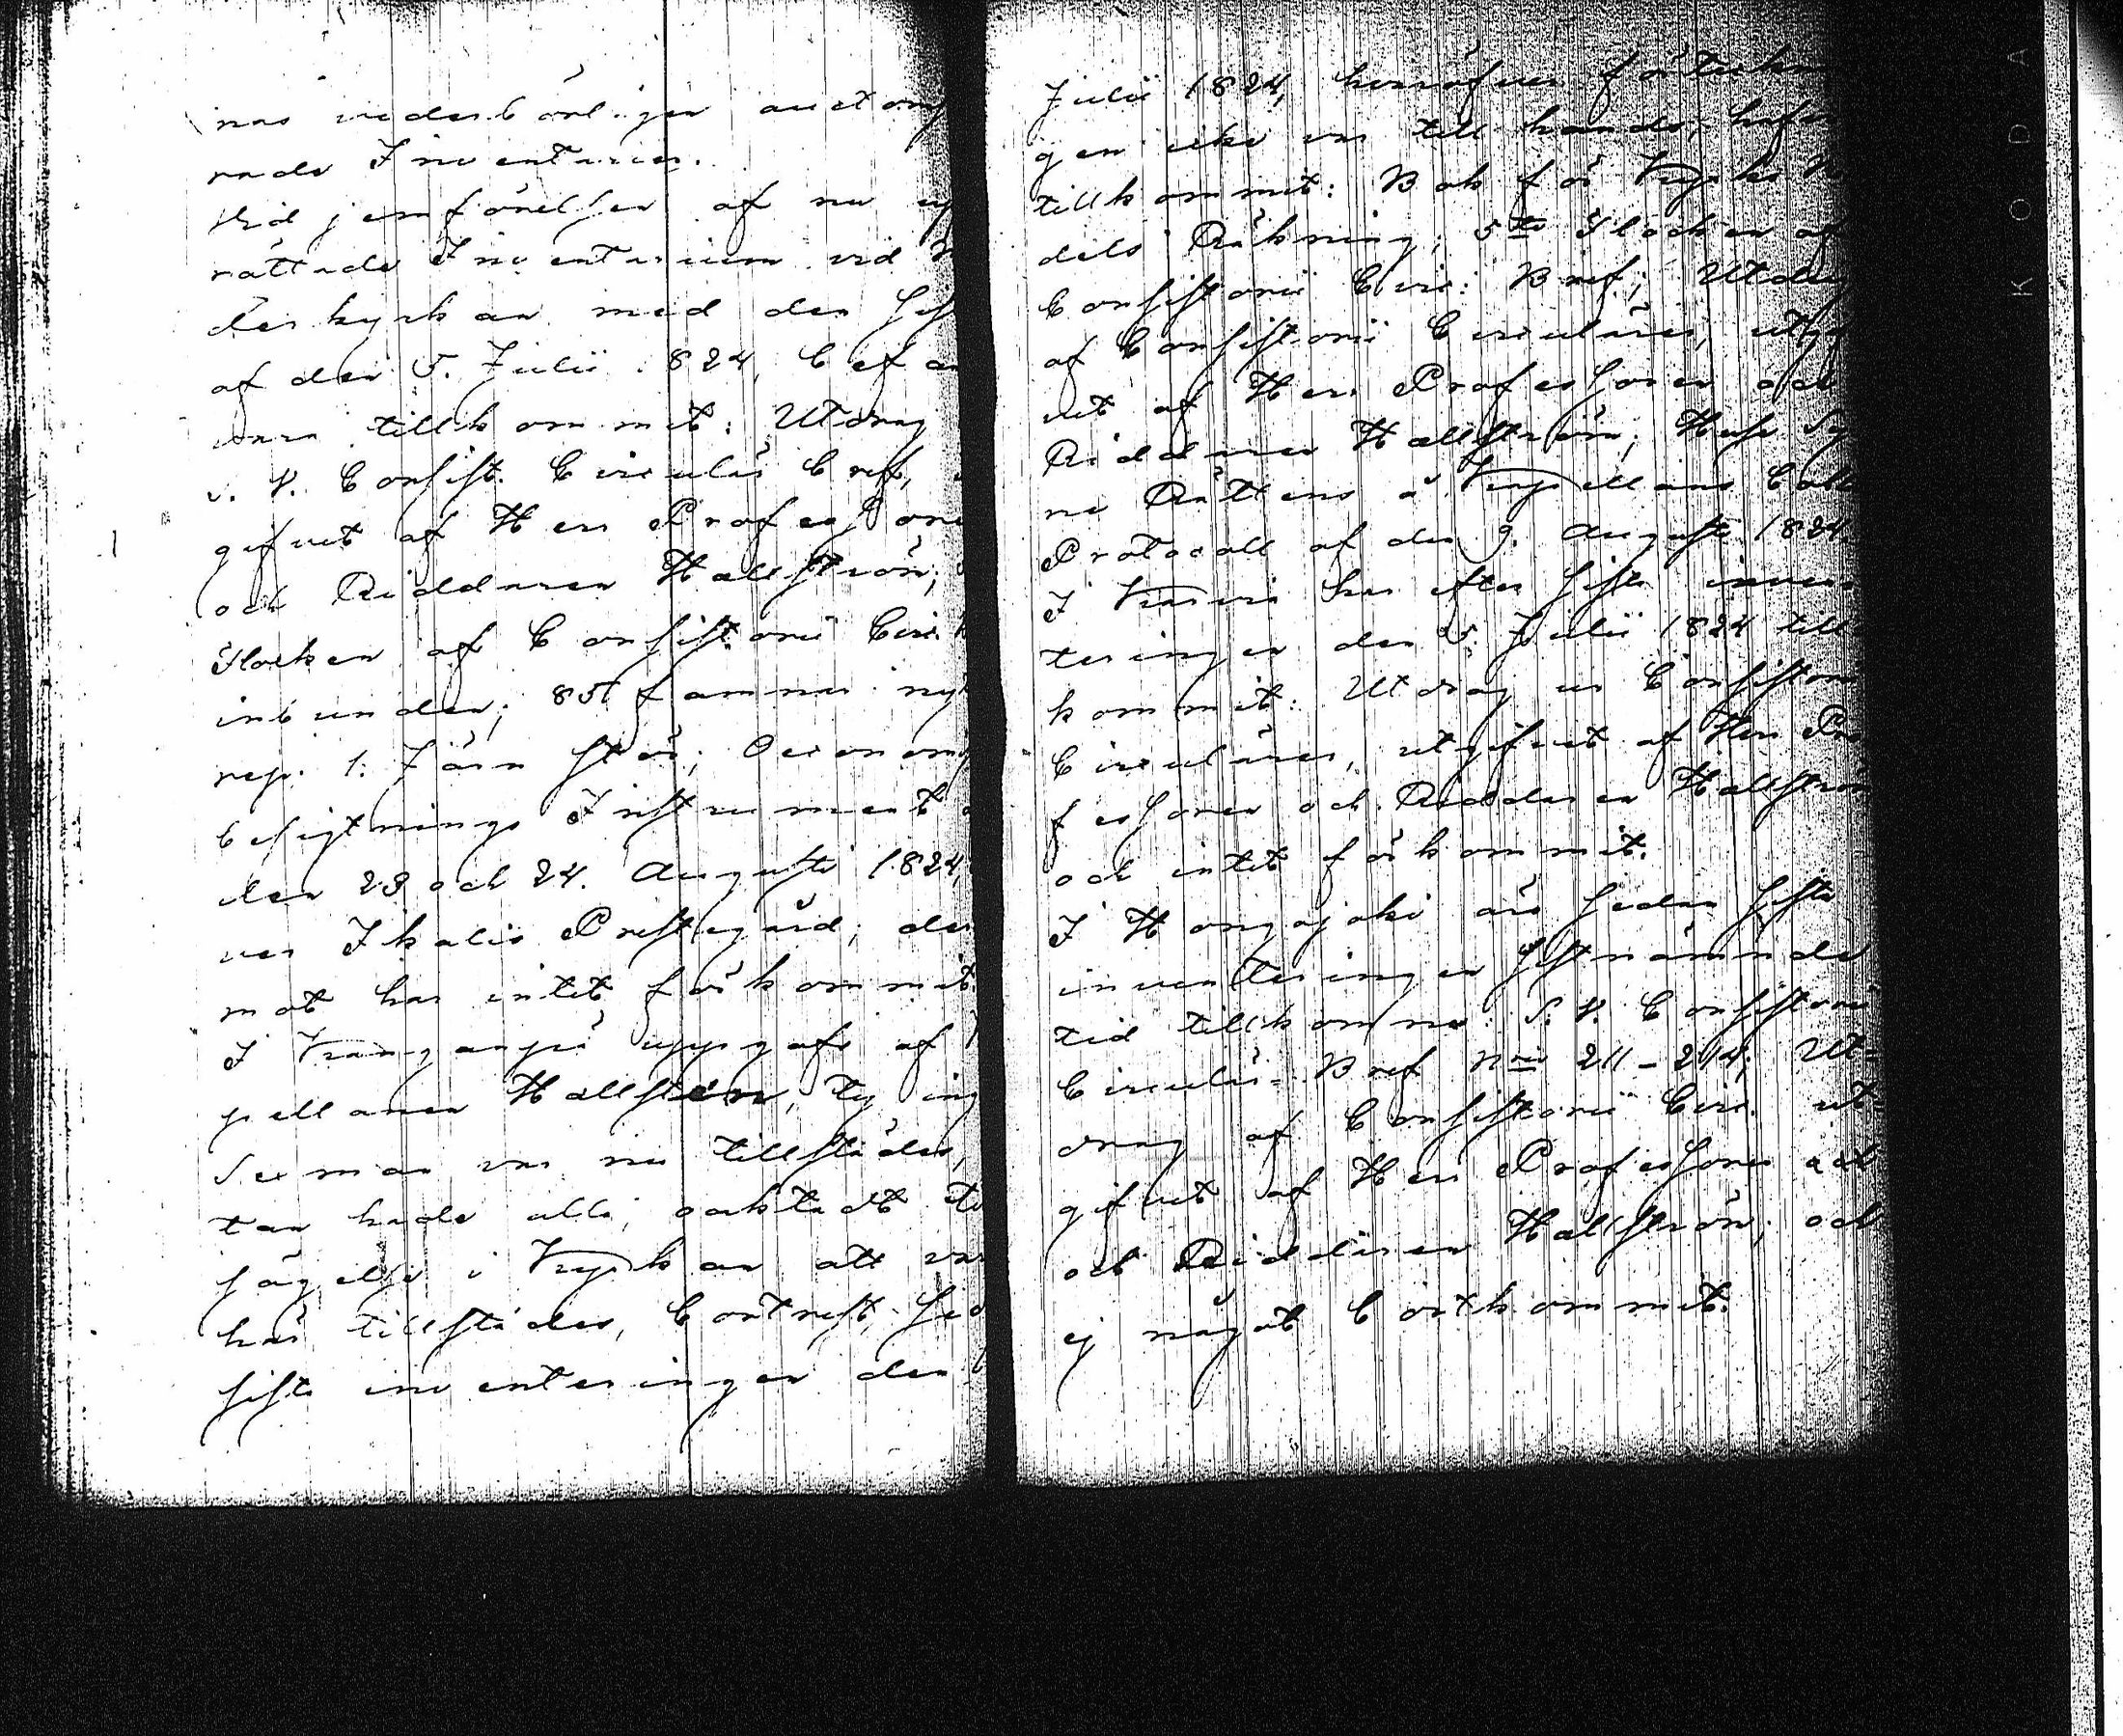 nas vederbörliga auctory
rade Inventarier.
Vid jemförelsen af nu up
rättade Inventarium vid
derkyrkan med den sist
af den 5. Julii 1824, befan
vara tillkommit: Utdrag
v. V. Consist. Circulär bref,
gifvet af Herr Professore
och Riddaren Hällström;
Flocken af Consistorii Circ.
inbunden; 85 famnar nytt
rep. 1: Järn stör; Oeconom
besigtnings Instrument
den 23 och 24. Augusti 1824,
ver Ikalis Prestegård; der
mot har intet förkommit.
I Kangaspä uppgafs af
pellanen Hallstén, ty ing
Sexman var nu tillstädes,
tan hade alla, oaktadt til
sägelse i Kyrkan att var
här tillstädes, bortrest, sed
sista inventeringen den
Julii 1824, hvaröfver förteckn
gen icke var till hands, hafv
tillkommit: Bok för Kyrko
dels Räkning; 5te Flocken af
Consistorii Circ: Bref; Utdrag
af Consistorii Circulärer, utgif
vet af Herr Professoren och
Riddaren Hällström; Husesy
ne Rättens å Kapellans bol
Protocoll af den 9. Augusti 1824.
I Karvia har efter sista inven
teringen den 5. Julii 1824 till
kommit: Utdrag ur Consistorii
Circulärer, utgifvet af Herr Pro
fessoren och Riddaren Hällström
och intet förkommit.
I Hongojoki äro sedan sista
inventeringen sistnämnde
tid tillkomne: V. V. Consistorii
Circulär-Bref Nris 211-214; Ut-
drag af Consistorii Circ. ut-
gifvet af Herr Professoren och
och Riddaren Hällström; och
ej något bortkommit.
KODA